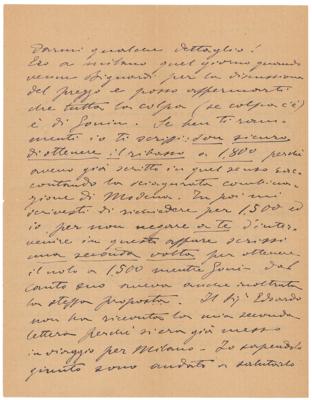 Darmi qualche dettaglio!
Ero a Milano quel giorno quando
venne Signardi per la dimissione
del prezzo e posso affermarti
che tutta la colpa (se colpa c'è)
è di Gonin. Se ben ti ram-
menti io ti scrissi: son sicuro
di ottenere il ribasso a 1,800 perchè
aveva già scritto in quel senso rac-
contando la sciagurata combina-
zione di Modena. Tu poi mi
scrivesti di richiedere per 1,500 ed
io per non negare a te d'inter-
venire in questo affare scrissi
una seconda volta per ottenere
il nolo a 1500 mentre Gonin dal
canto suo aveva anche inoltrata
la stessa proposta. Il Sig. Edoardo
non ha ricevuta la mia seconda
lettera perchè si era già messo
in viaggio per Milano - Io sapendolo
giunto sono andato a salutarlo